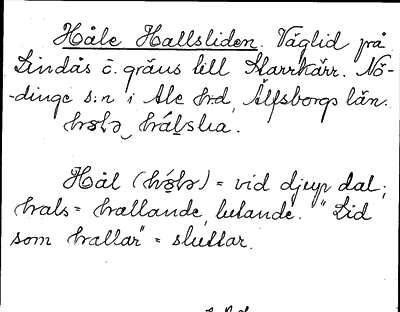 Håle Hallsliden. Väglid på
Lindås å gräns till Starrkärr. Nö-
-dinge s:n i Ale hrd, Älfsborgs län.
Hål = vid djup dal;
hals = hallande, lutande. "Lid
som hallar" = sluttar.